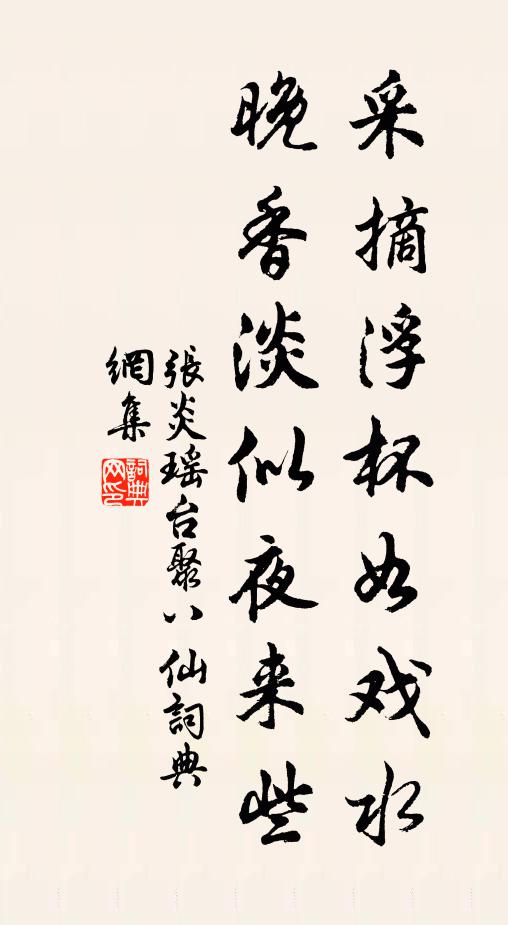 采摘浮杯如戏水
晚香淡似夜来些
張炎瑶台聚八仙詞典
網集
詞典
网印